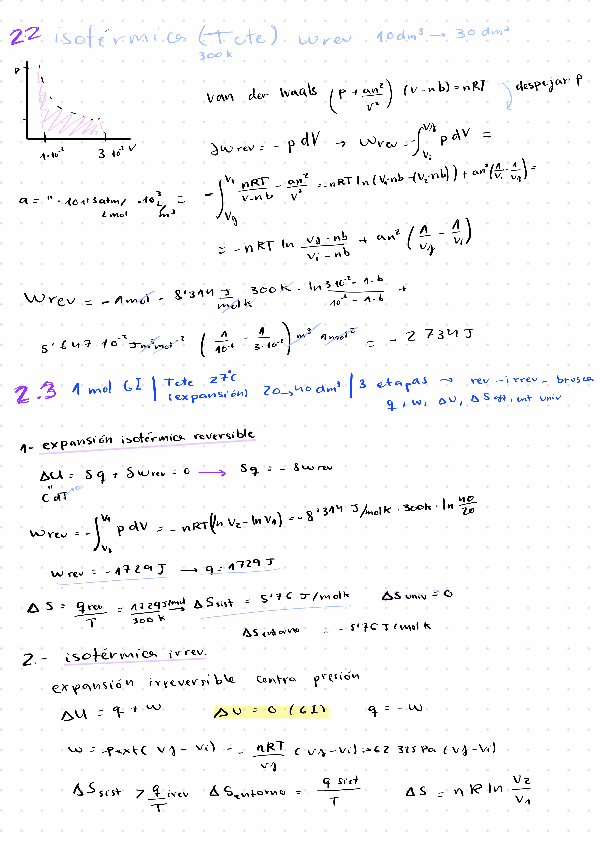 2.2 isotérmica (Tcte) wrev 10dm³ → 30 dm³
300k
P
1·10⁻² 3·10⁻² V
Van der Waals (P + an²/V²) (V-nb) = nRT despejar P
δwrev = - p dV → wrev = -∫ p dV =
-∫ nRT/V-nb - an²/V² = -nRT ln (V₂-nb
= -nRT ln Vf-nb/Vi-nb + an² (1/Vf - 1/Vi)
Wrev = -1mol · 8'314 J/mol k 300k · ln 3·10⁻²-1·b/10⁻²-1·b +
(1/10⁻² - 1/3·10⁻²) m³ 1mol² = -2734J
2.3 1 mol GI | Tcte 27ºC (expansión) 20→40 dm³ | 3 etapas → rev - irrev - brusca
q, w, ΔU, ΔS sist, ent univ
1- expansión isotérmica reversible
ΔU = δq + δwrev = 0 → δq = -δwrev
C dT
Wrev = -∫ p dV = -nRT(ln V₂ - ln V₁) = -8'314 J/molk · 300k · ln 40/20
Wrev = -1729J → q = 1729J
ΔS = qrev/T = 1729J/mol/300k → ΔSsist = 5'76 J/molk ΔSuniv = 0
ΔSentorno = -5'76 J/molk
2.- isotérmica irrev.
expansión irreversible contra presión
ΔU = q + w ΔU = 0 (GI) q = -w
w = -pext (Vf - Vi) = - nRT/Vf (Vf - Vi) = 62 325 Pa (Vf - Vi)
ΔSsist > q/T irev ΔSentorno = q sist/T ΔS = nR ln V₂/V₁